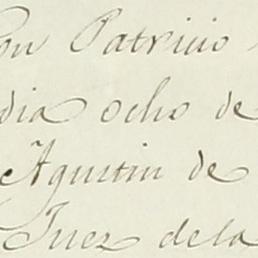 on Patricio
dia ocho de
Agustin de
Juez dela